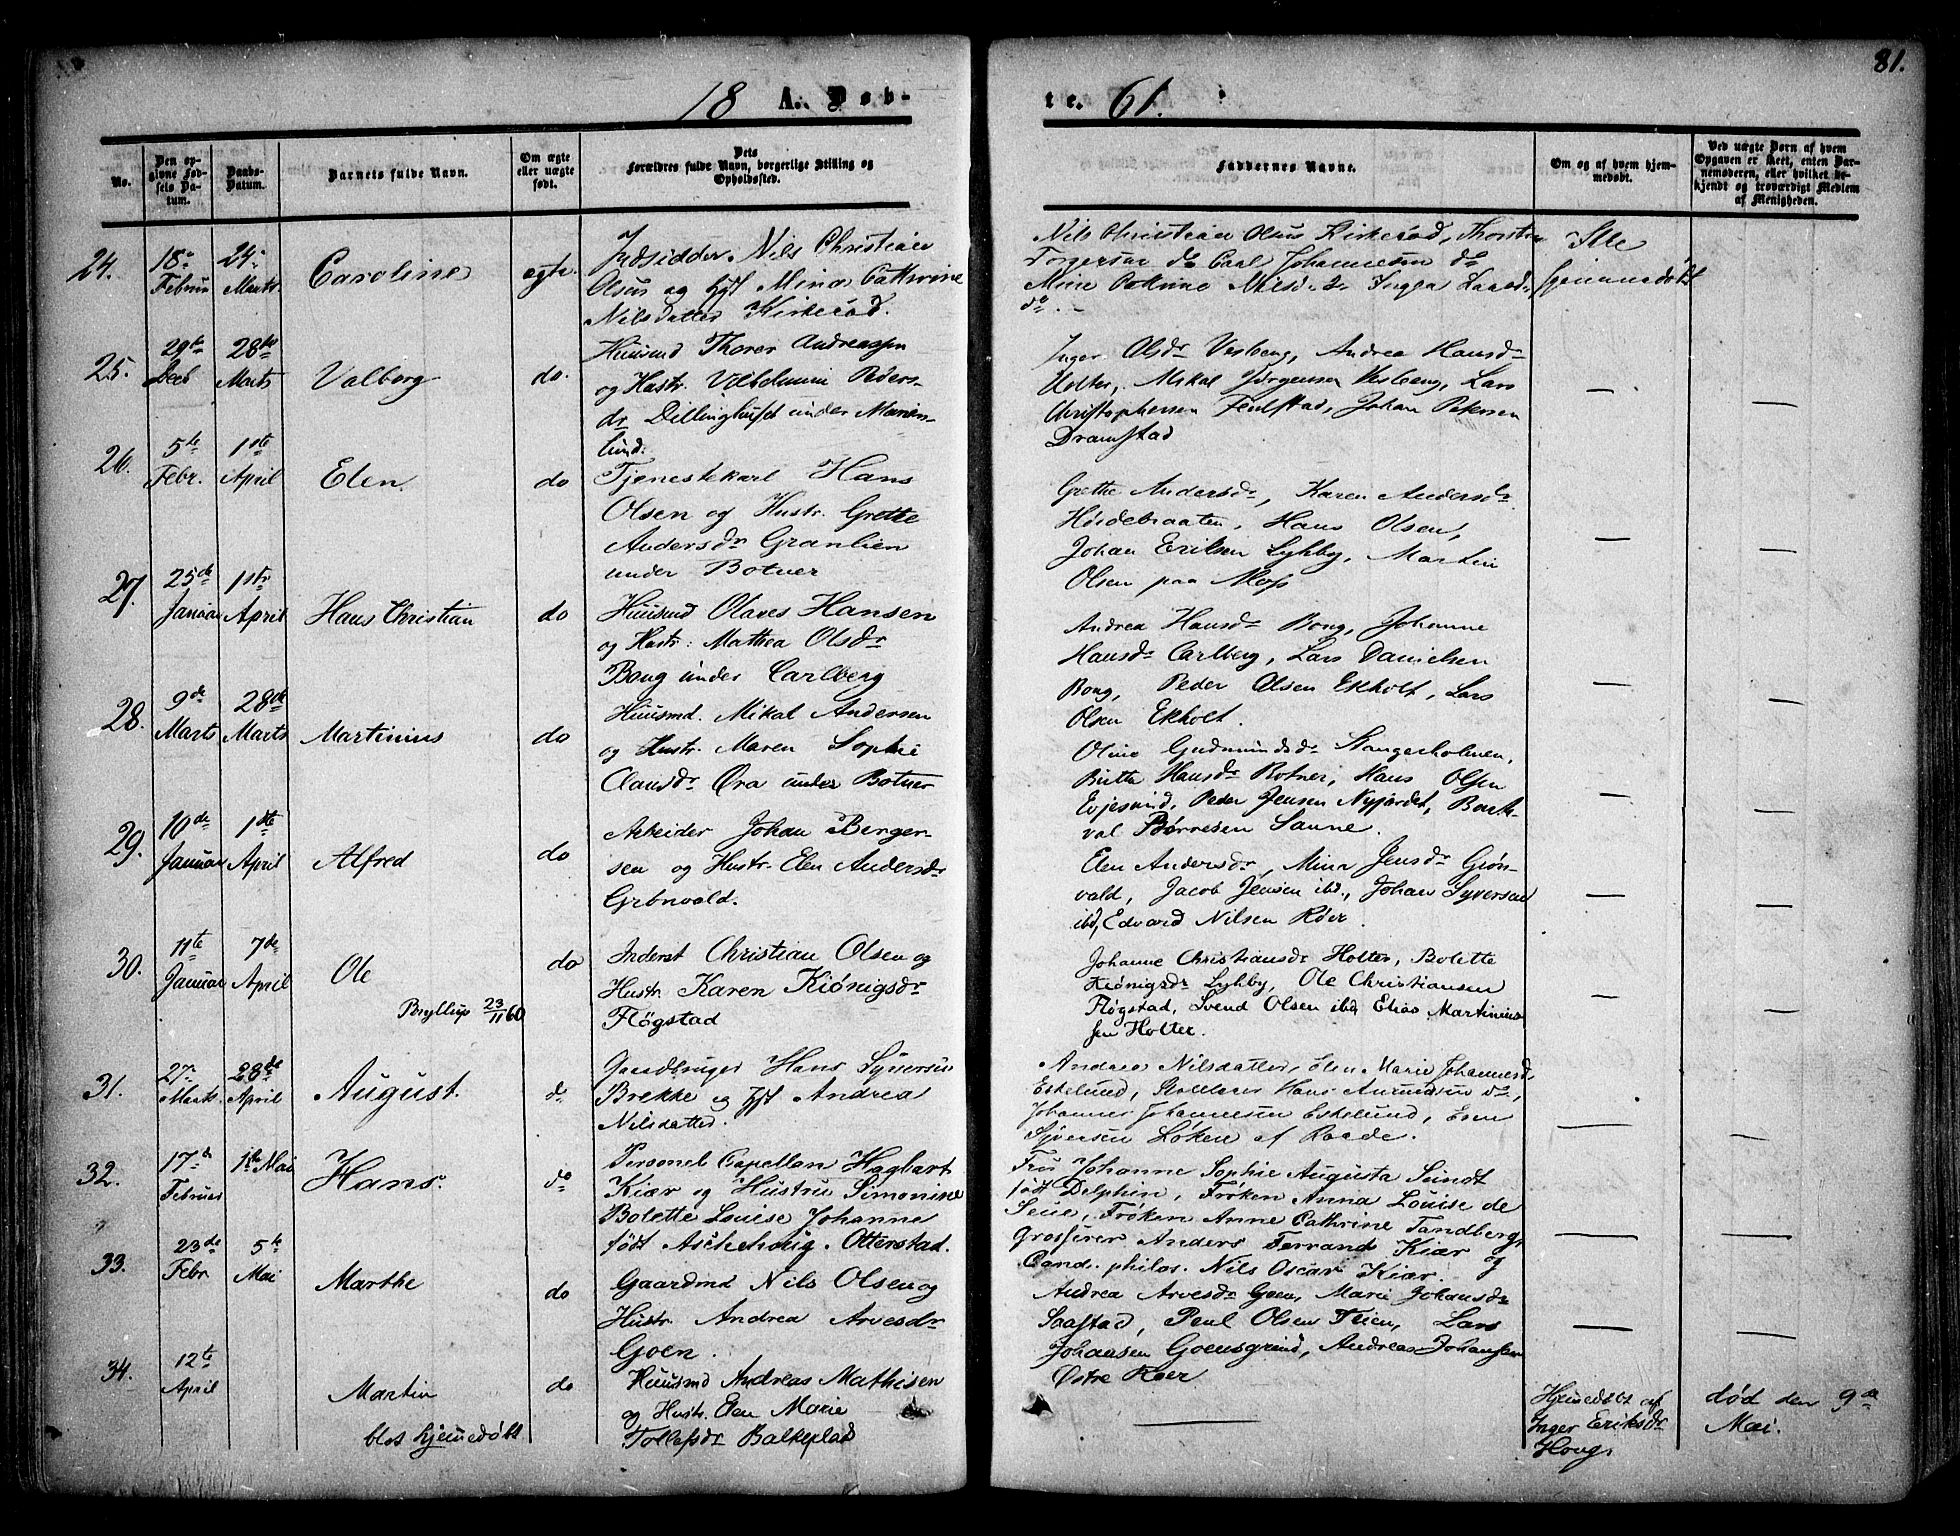 81.
18 A. Døb-
te. 61.
No.
Den opgivne Fødsels Datum.
Daabs-Datum.
Barnets fulde Navn.
Om ægte eller uægte født.
Dets Forældres fulde Navn, borgerlige Stilling og Opholdssted.
Faddernes Navne.
Om og af hvem hjemmedøbt.
Ved uægte Børn af hvem Opgaven er skeet, enten Barnemoderen, eller hvilket bekjendt og troværdigt Medlem af Menigheden.
24.
18de Februar
24de Marts
Caroline
egte.
Indsidder Nils Christian
Olsen og Hst Mina Cathrine
Nilsdatter Kirkerød.
Nils Christian Olsen Kirkerød, Thorsten
Torgersen do Carl Johannesen do
Mine Nilsd. do Inger Larsd.
do. -
Ikke
hjemmedøbt
25.
29te Decb
28de Marts
Valborg
do.
Huusmd Thorer Andreassen
og Hustr. Vilhelmine Peders-
dr Dillinghuset under Marien-
lund.
Inger Olsdr Vesberg, Andrea Hansdr
Holter, Mikal Jørgensen Vesberg, Lars
Christophersen Feulstad, Johan Petersen
Dramstad
—
—
26.
5te Febr.
1ste April
Elen.
do
Tjenestekarl Hans
Olsen og Hustr. Grethe
Andersdr Granlien
under Botner
Grethe Andersdr, Karen Andersdr
Hordebraaten, Hans Olsen,
Johan Eriksen Lyhby, Martin
Olsen paa Moss
—
—
27.
25de Januar
1ste April
Hans Christian
do
Huusmd Olaves Hansen
og Hustr: Mathea Olsdr
Bong under Carlberg
Andrea Hansdr Bong, Johanne
Hansdr Carlberg, Lars Danielsen
Bong, Peder Olsen Ekholt, Lars
Olsen Ekholt.
—
—
28.
9de Marts
28de Marts
Martinius
do
Huusmd. Mikal Andersen
og Hustr. Maren Sophie
Clausdr Øra under Botner
Oline Gudmundsdr Stangeholmen,
Britta Hansdr Botner, Hans Olsen
Evjesund, Peder Jensen Nyjordet, Bart-
val Børresen Saune.
—
—
29.
10de Januar
1ste April
Alfred
do
Arbeider Johan Berger-
sen og Hustr. Elen Andersdr
Grönvald.
Elen Andersdr, Mina Jensdr Grön-
vald, Jacob Jensen ibd., Johan Syversen
ibd, Edvard Nilsen Röer.
—
—
30.
11te Januar
7de April
Ole
Bryllup 23/11 60
do
Inderst Christian Olsen og
Hustr. Karen Kiönigsdr
Flögstad
Johanne Christiansdr Holter, Bolette
Kiönigsdr Lyhby, Ole Christiansen
Flögstad, Svend Olsen ibd, Elias Martinius-
sen Holter.
—
—
31.
27de Marts.
28de April
August.
do
Gaardbruger Hans Syversen
Brekke og Hst Andrea
Nilsdatter.
Andrea Nilsdatter, Elen Marie Johannesd.
Eskelund, Hans do,
Johannes Johannesen Eskelund, Even
Syversen Løken af Raade.
—
—
32.
17de Februar
1ste Mai
Hans.
do
Personel Capellan Hagbart
Kiær og Hustru Simonine
Bolette Louise Johanne
født Aschehoug. Otterstad.
Fru Johanne Sophie Augusta Sundt
født Delphin, Frøken Anna Louise de
Seue, Frøken Anne Cathrine Tandberg,
Grosserer Anders Ferrand Kiær og
Cand. philos. Nils Oscar Kiær.
—
—
33.
23de Febr
5te Mai
Marthe
do
Gaardmd Nils Olsen og
Hustr. Andrea Arvesdr
Goen.
Andrea Arvesdr Goen, Marie Johansdr
Saastad, Poul Olsen Teien, Lars
Johansen Goensgrind, Andreas Johansen
Østre Röer
—
—
34.
12te April
Martin
blot hjemedøbt
do
Huusmd Andreas Mathisen
og Hustr. Elen Marie
Tollefsdr Balkeplad
—
Hjemedøbt af
Inger Eriksdr
Houg,
død den 9de
Mai.